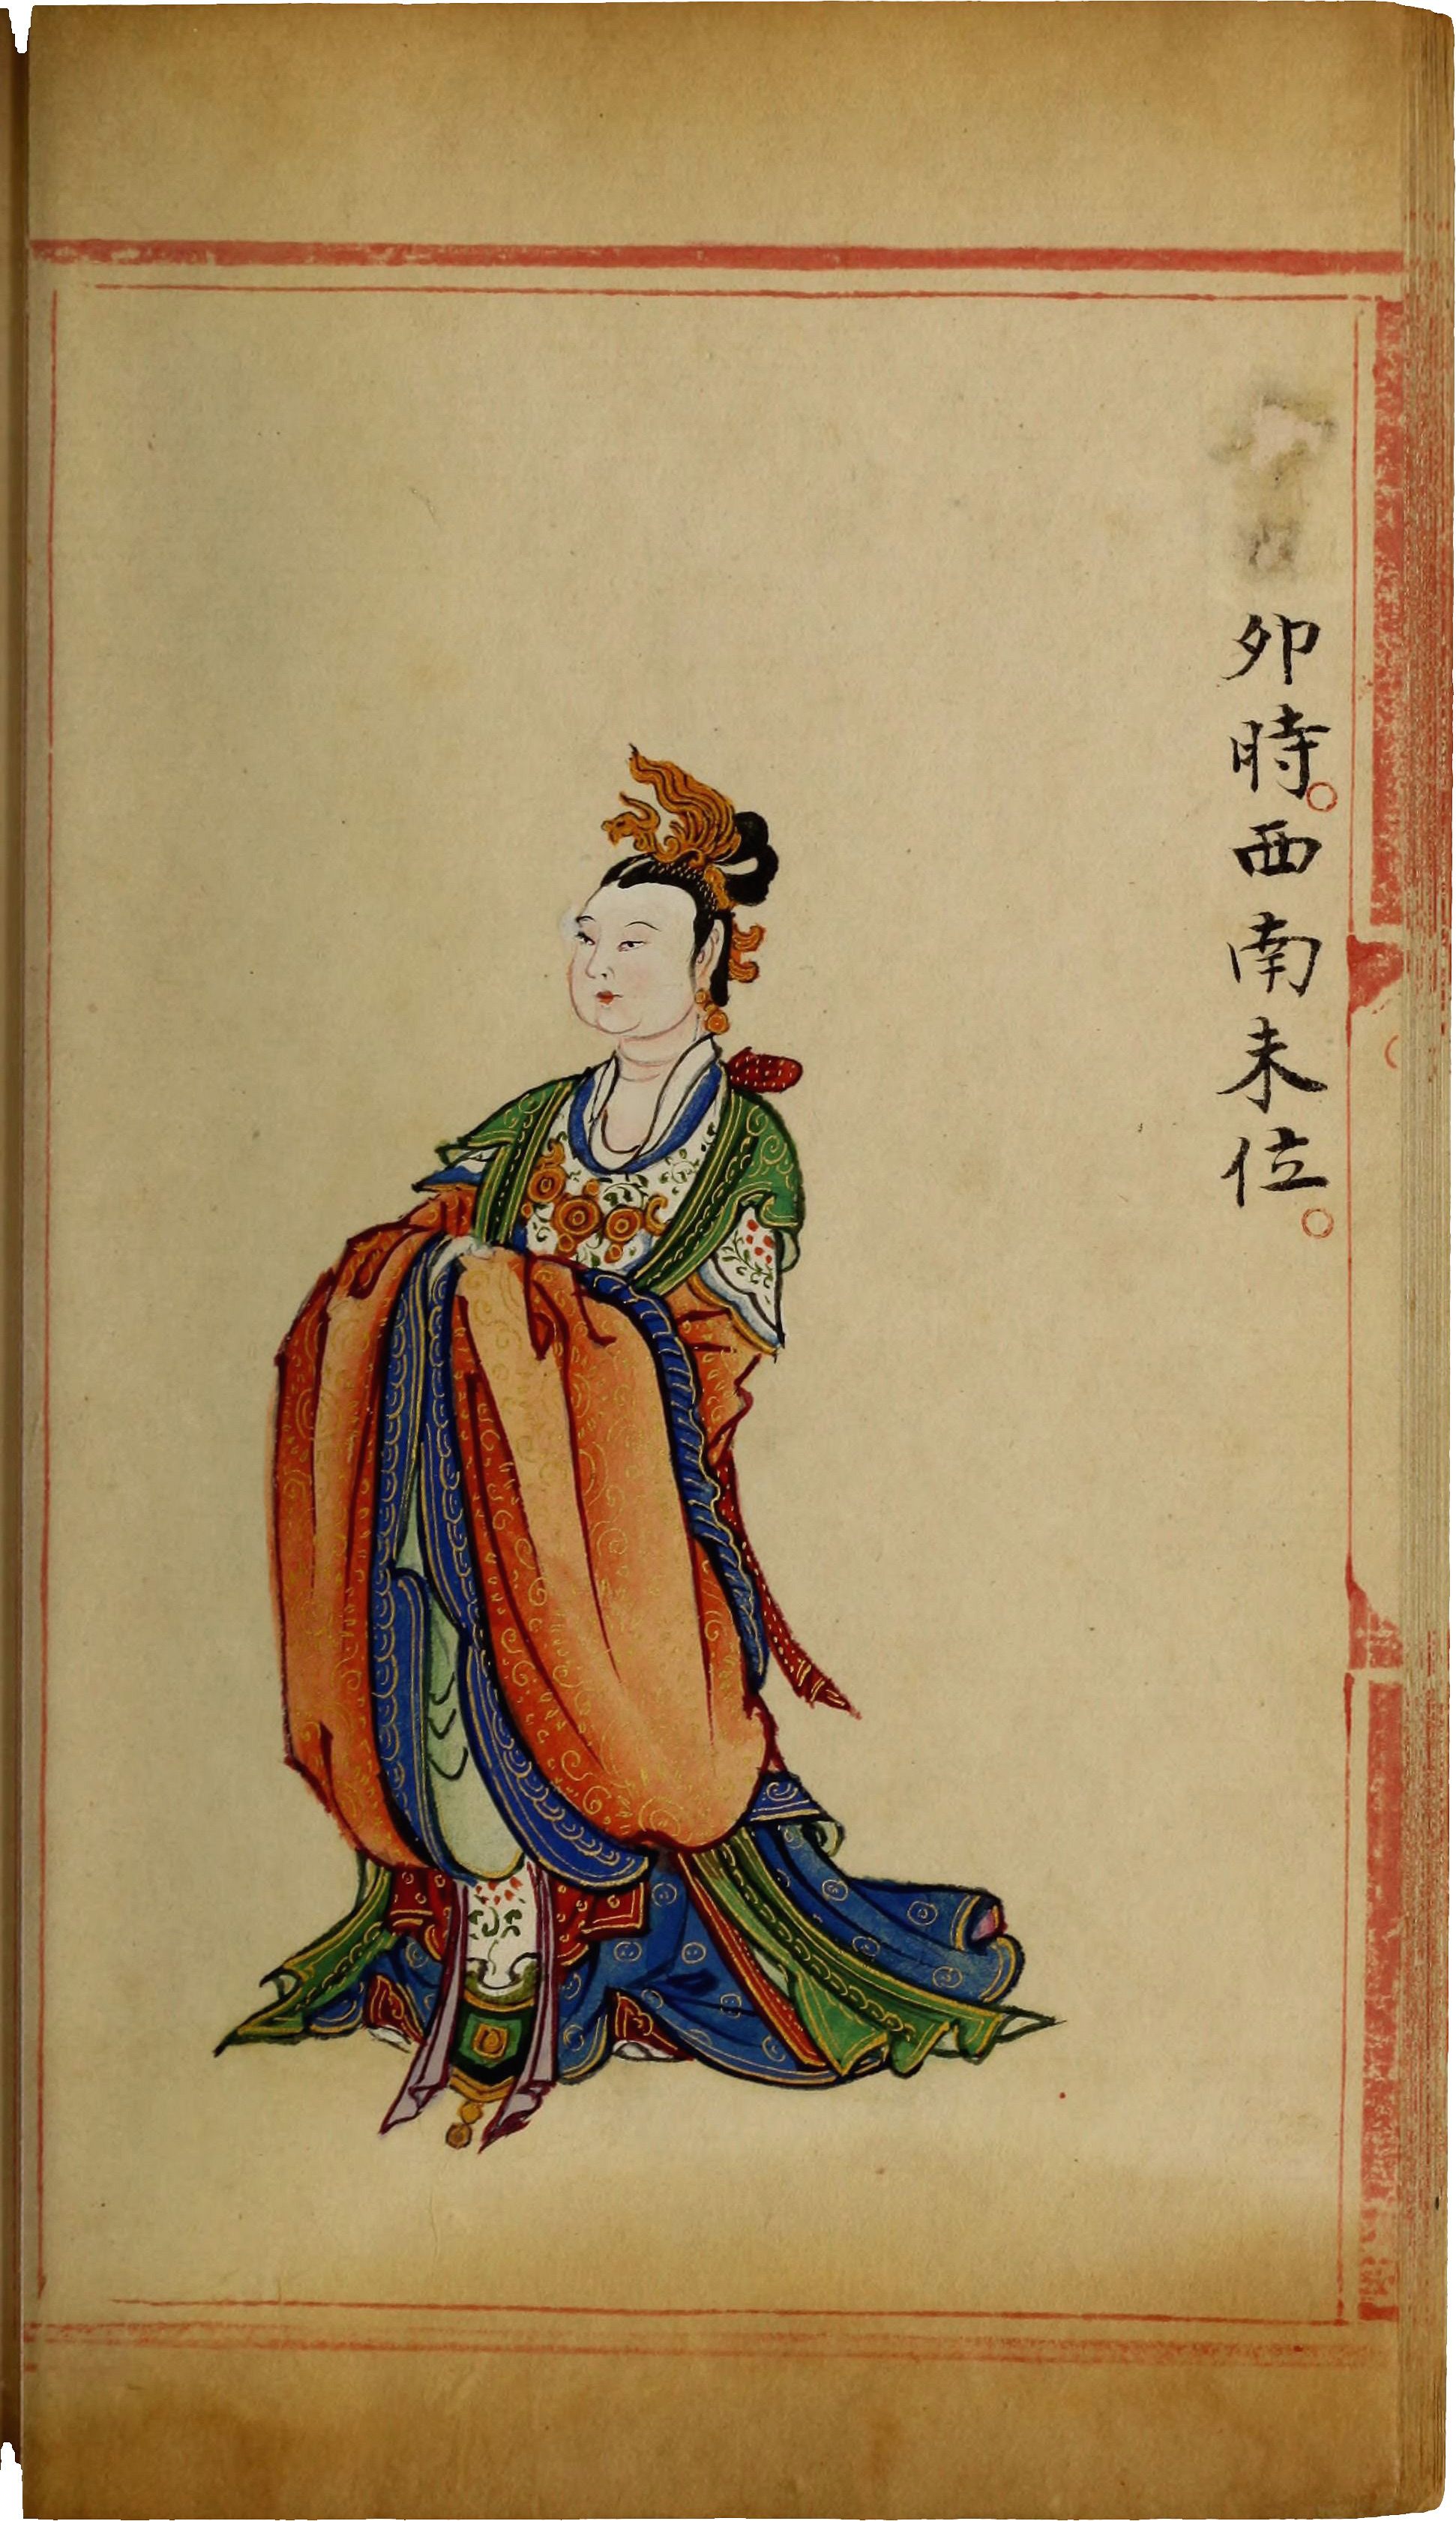 卯時。西南未位。